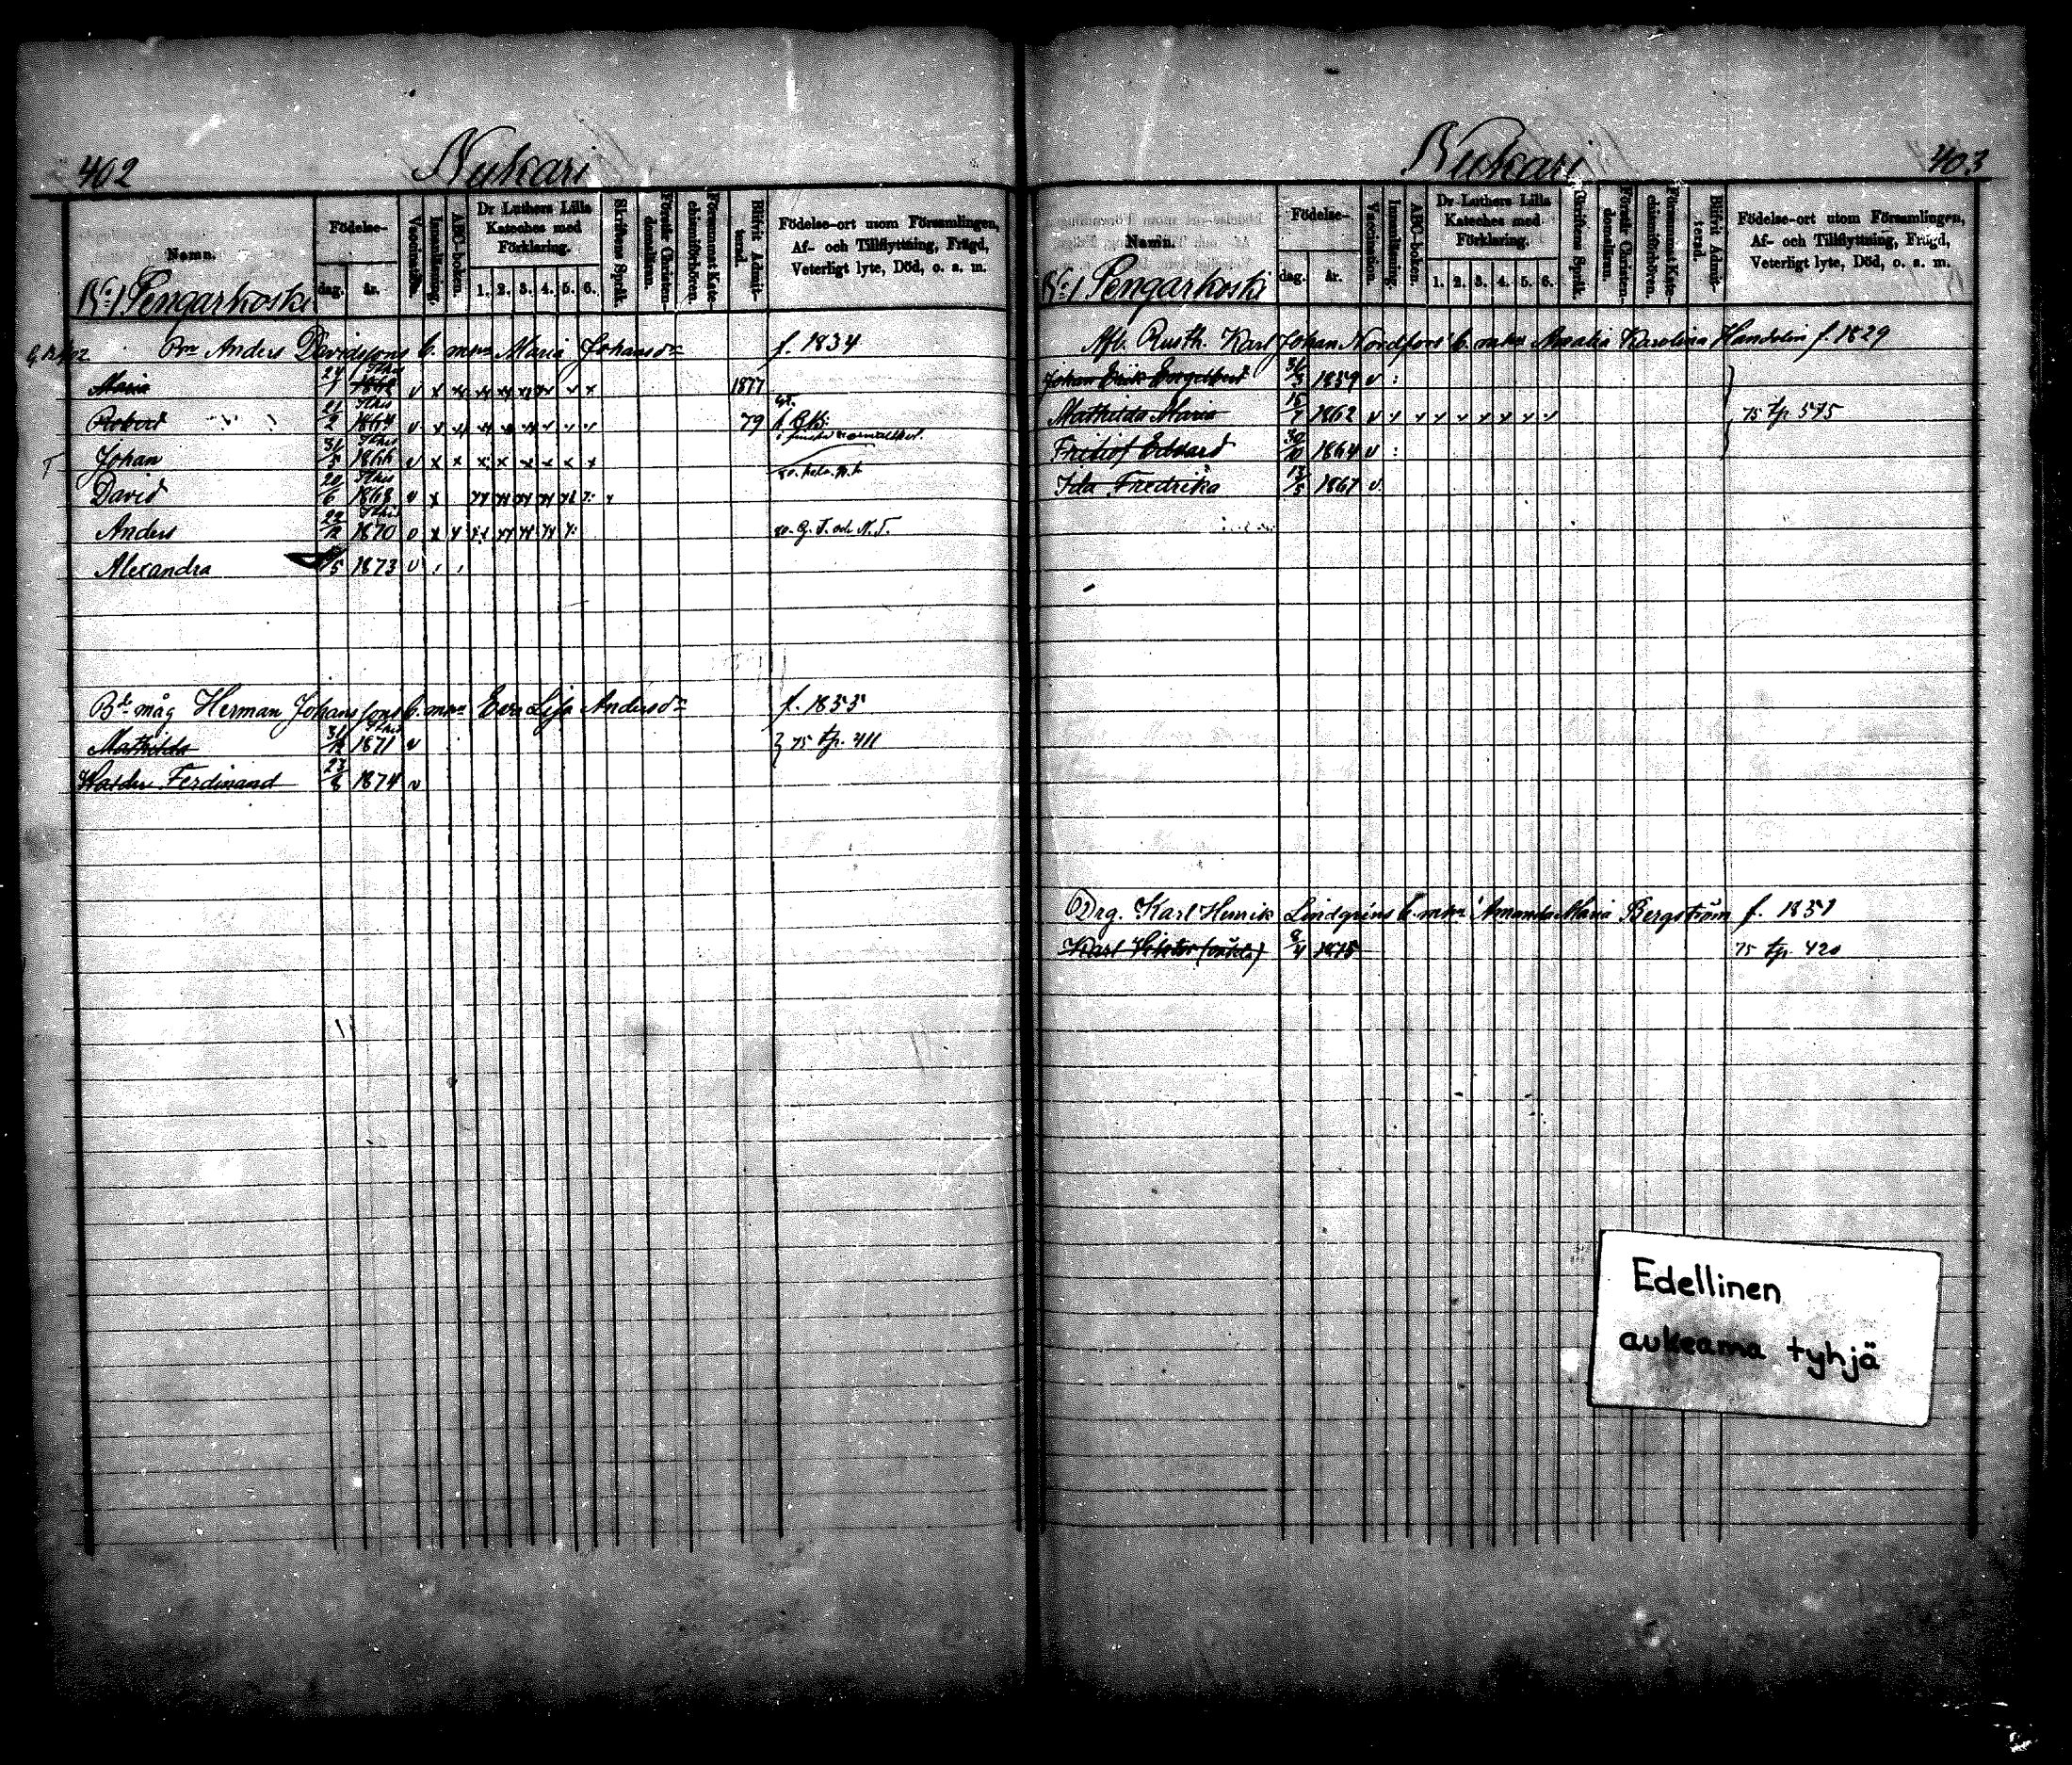 402
Nukari
Namn.
Födelse-
dag.
år.
Vaccination.
Innanläsning.
ABC-boken.
Dr Luthers Lilla Kateches med Förklaring.
1. 2. 3. 4. 5. 6.
Skriftens Språk.
Förstår Christen-domsläran.
Försummat Kate-chismiförhören.
Blifvit Admit-terad.
Födelse-ort utom Församlingen,
Af- och Tillflyttning, Frägd,
Veterligt lyte, Död, o. s. m.
N:o 1 Pengarkoski
Anders Davidssons b. m. Maria Johansdr f. 1834
Maria 24/1 1877
Robert 21/2 1864 79
Johan 31/5 1866
David 20/6 1868
Anders 22/12 1870
Alexandra /5 1873
måg Herman Johanssons b. m. Eva Lisa Andersdr f. 1855
Mathilda 31/12 1871 } 75 tp. 411
Ferdinand 23/8 1874
403
Nukari
Namn.
Födelse-
dag.
år.
Vaccination.
Innanläsning.
ABC-boken.
Dr Luthers Lilla Kateches med Förklaring.
1. 2. 3. 4. 5. 6.
Skriftens Språk.
Förstår Christen-domsläran.
Försummat Kate-chismiförhören.
Blifvit Admit-terad.
Födelse-ort utom Församlingen,
Af- och Tillflyttning, Frägd,
Veterligt lyte, Död, o. s. m.
N:o 1 Pengarkoski
Afl. Rusth. Karl Johan Nordfors' b. m. Amalia Karolina Handolin f. 1829
Johan Erik Engelbert 31/3 1859
Mathilda Maria 15/7 1862 75 tp 575
Fritiof Edvard 30/10 1864
Ida Fredrika 13/5 1867
Drg. Karl Henrik Lindgrens b. m. Amanda Maria Bergström f. 1851
Karl Viktor 8/4 1875 75 tp. 420
Edellinen
aukeama tyhjä